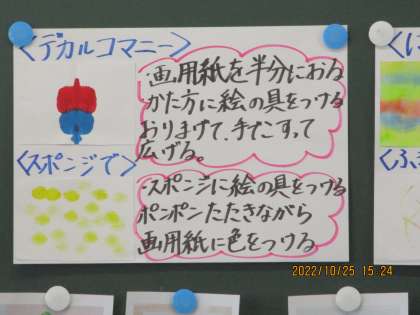 <デカルコマニー>
・画用紙を半分におる
かた方に絵の具をつける
おりまげて、手でこすって
広げる。
<スポンジで>
・スポンジに絵の具をつける
ポンポンたたきながら
画用紙に色をつける
2022/10/25 15:24